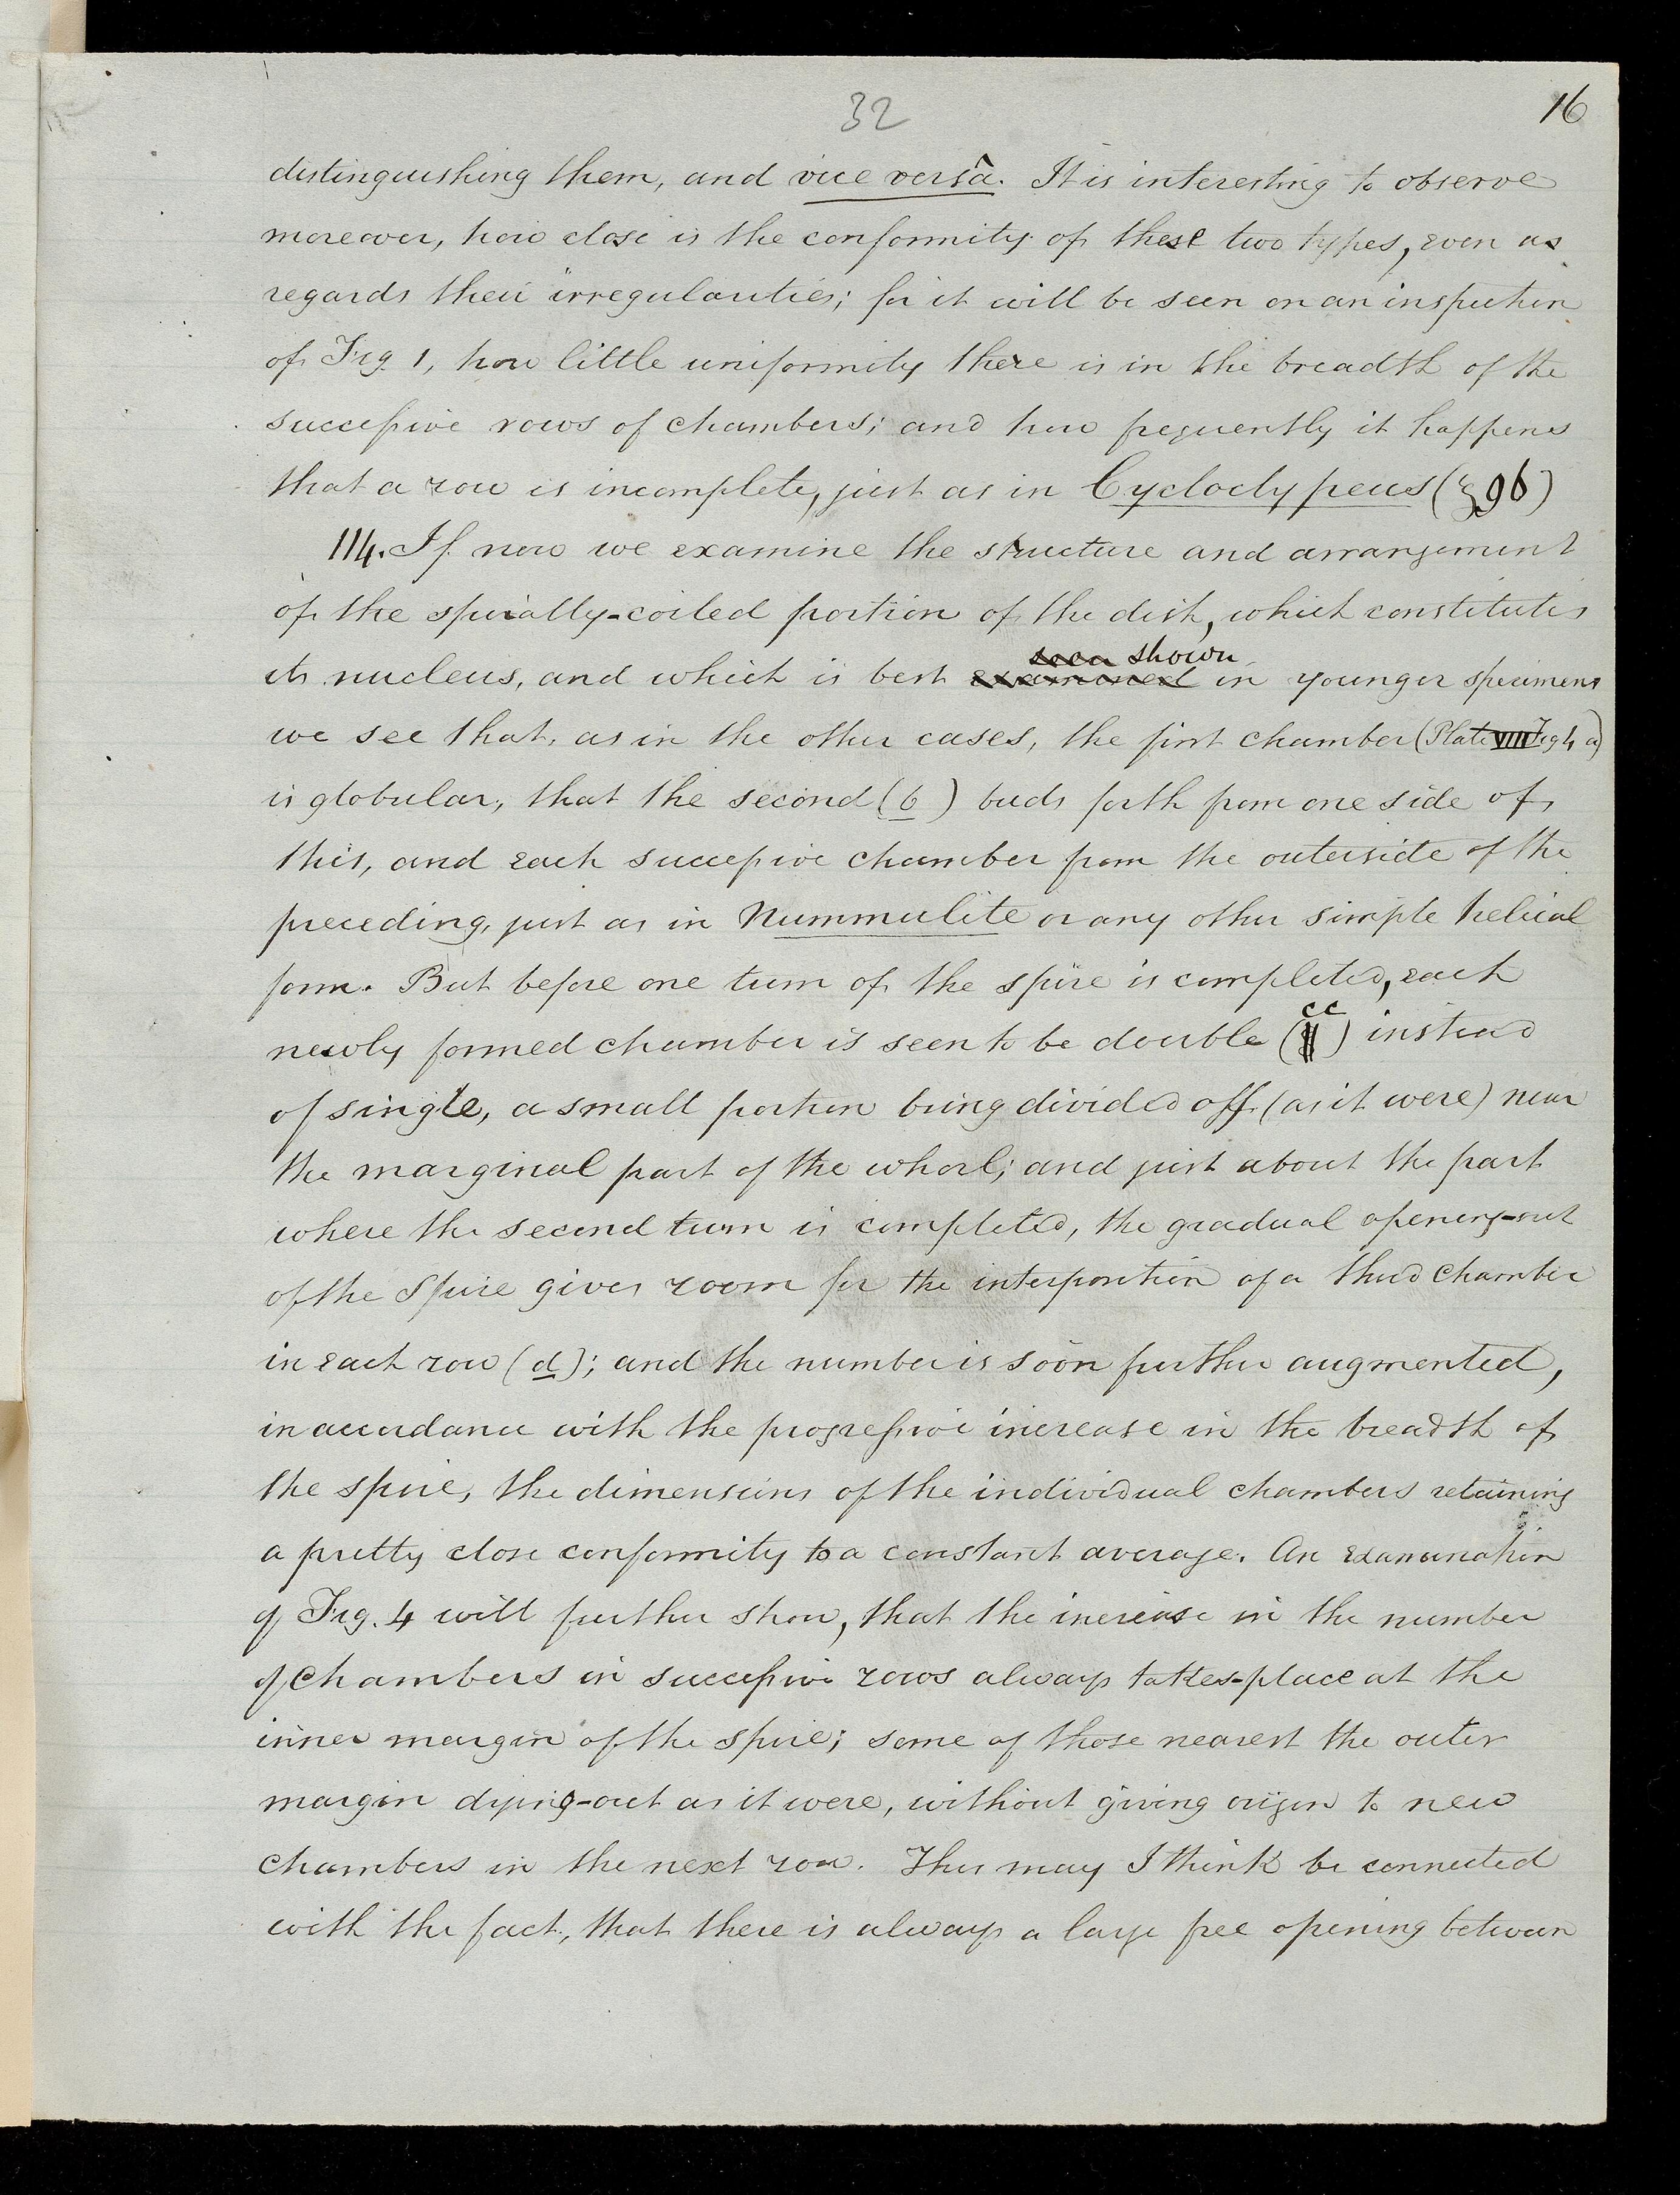 32
16
distinguishing them, and vice versâ. It is interesting to observe
moreover, how close is the conformity of these two types, even as
regards their irregularities; for it will be seen on an inspection
of Fig. 1, how little uniformity there is in the breadth of the
successive rows of chambers; and how frequently it happens
that a row is incomplete, just as in Cycloclypeus (§ 96)
114. If now we examine the structure and arrangement
of the spirally-coiled portion of the disk, which constitutes
seen shown
its nucleus, and which is best examined in younger specimens
we see that, as in the other cases, the first chamber (Plate VIII Fig 4, a)
is globular, that the second (b) buds forth from one side of
this, and each successive chamber from the outerside of the
preceding, just as in Nummulite or any other simple helical
form. But before one turn of the spire is completed, each
cc
newly formed chamber is seen to be double ( ) instead
of single, a small portion being divided off (as it were) near
the marginal part of the whorl; and just about the part
where the second turn is completed, the gradual opening-out
of the spire gives room for the interposition of a third chamber
in each row (d); and the number is soon further augmented,
in accordance with the progressive increase in the breadth of
the spire, the dimensions of the individual chambers retaining
a pretty close conformity to a constant average. An examination
of Fig. 4 will further show, that the increase in the number
of chambers in successive rows always takes-place at the
inner margin of the spire; some of those nearest the outer
margin dying-out as it were, without giving origin to new
chambers in the next row. This may I think be connected
with the fact, that there is always a large free opening between